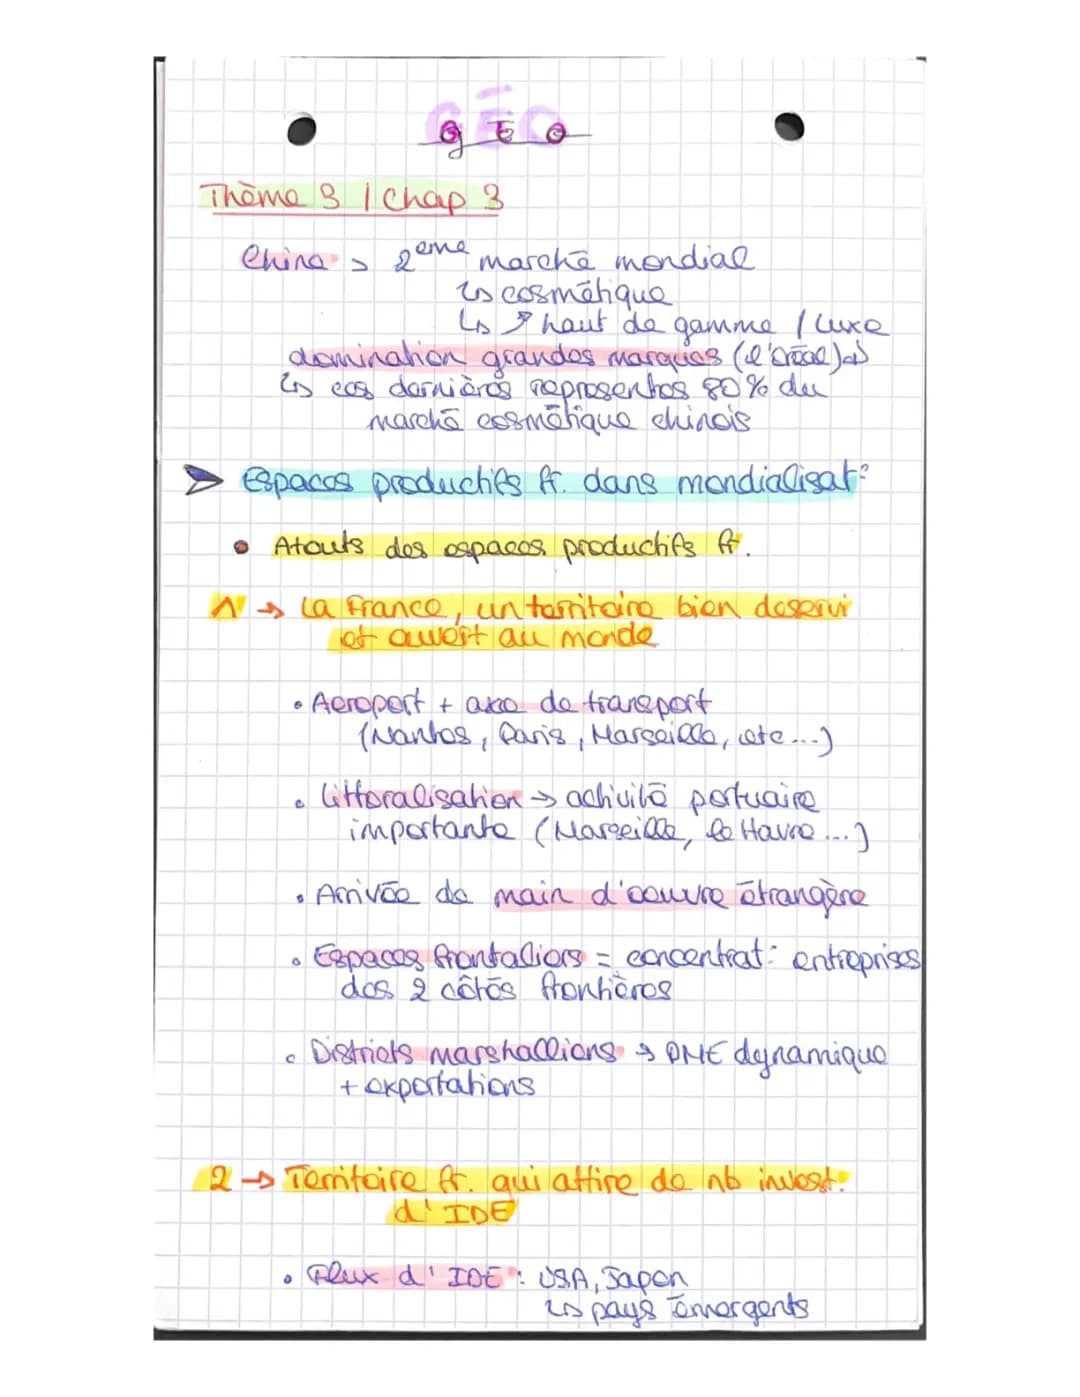 GÉO
Thème 3 / Chap 3
Chine > 2ème marché mondial
↳ cosmétique
↳ ↗ haut de gamme / luxe
domination grandes marques (l'Oréal)
↳ ces dernières représentes 80% du
marché cosmétique chinois
➤ Espaces productifs fr. dans mondialisat°
• Atouts des espaces productifs fr.
1 → La France, un territoire bien deservi
et ouvert au monde
• Aeroport + axe de transport
(Nantes, Paris, Marseille, etc...)
• Littoralisation → activité portuaire
importante (Marseille, le Havre...)
• Arrivée de main d'oeuvre étrangère
• Espaces frontaliers = concentrat° entreprises
des 2 côtés frontières
• Districts marshalliens → PME dynamique
+ exportations
2 → Territoire fr. qui attire de nb invest.
d'IDE
• Flux d'IDE : USA, Japon
↳ pays émergents